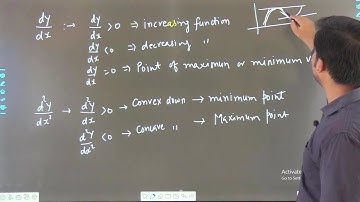 dy/dx :→ dy/dx >0 ⇒ increasing function
dy/dx <0 ⇒ decreasing "
dy/dx =0 ⇒ Point of maximum or minimum
d²y/dx² → d²y/dx >0 → Convex down → minimum point
d²y/dx² <0 → Concave " → Maximum point
Activate
Go to Set